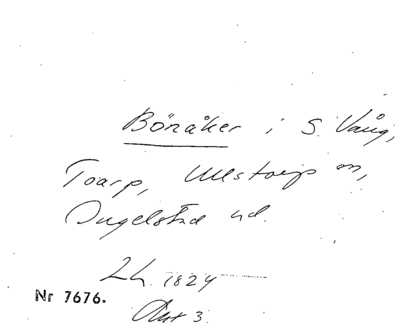 Bönåker i S. Vång,
Toarp, Ullstorp sn,
Ingelstad hd.
Lh. 1824
Nr 7676.
Akt 3.